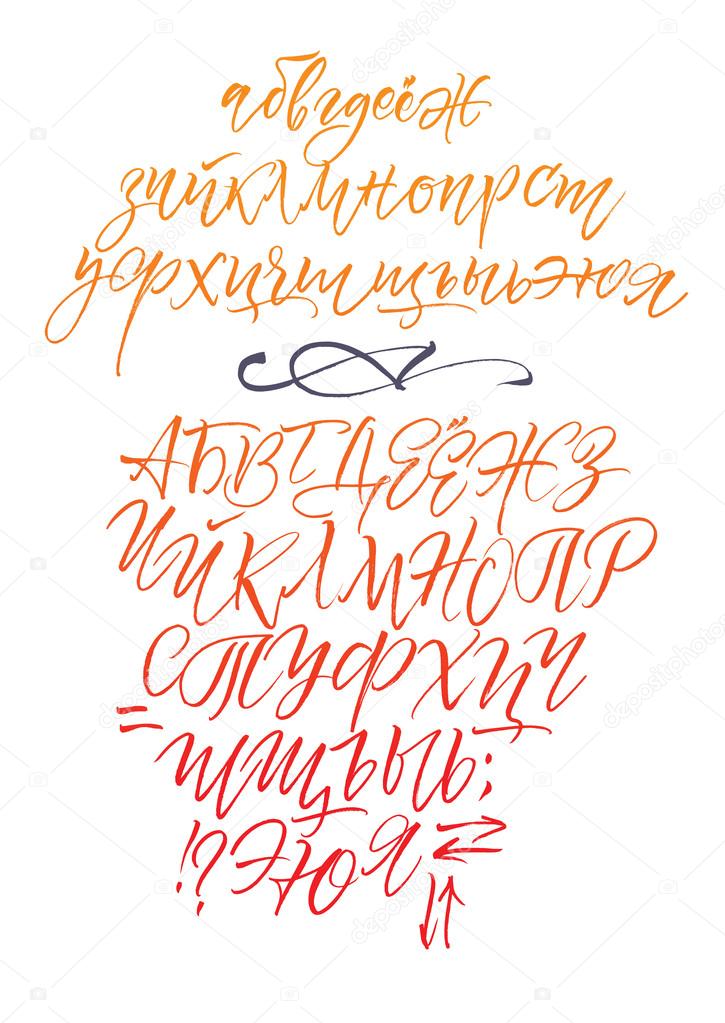 абвгдеёж
зийклмнопрст
уфрхцчшщъыьэюя
АБВГДЕЁЖЗ
ИЙКЛМНОПР
СТУФХЦЧ
=
ШЩЪЫЬ;
!?ЭЮЯ⇄
↓↑
depositphotos